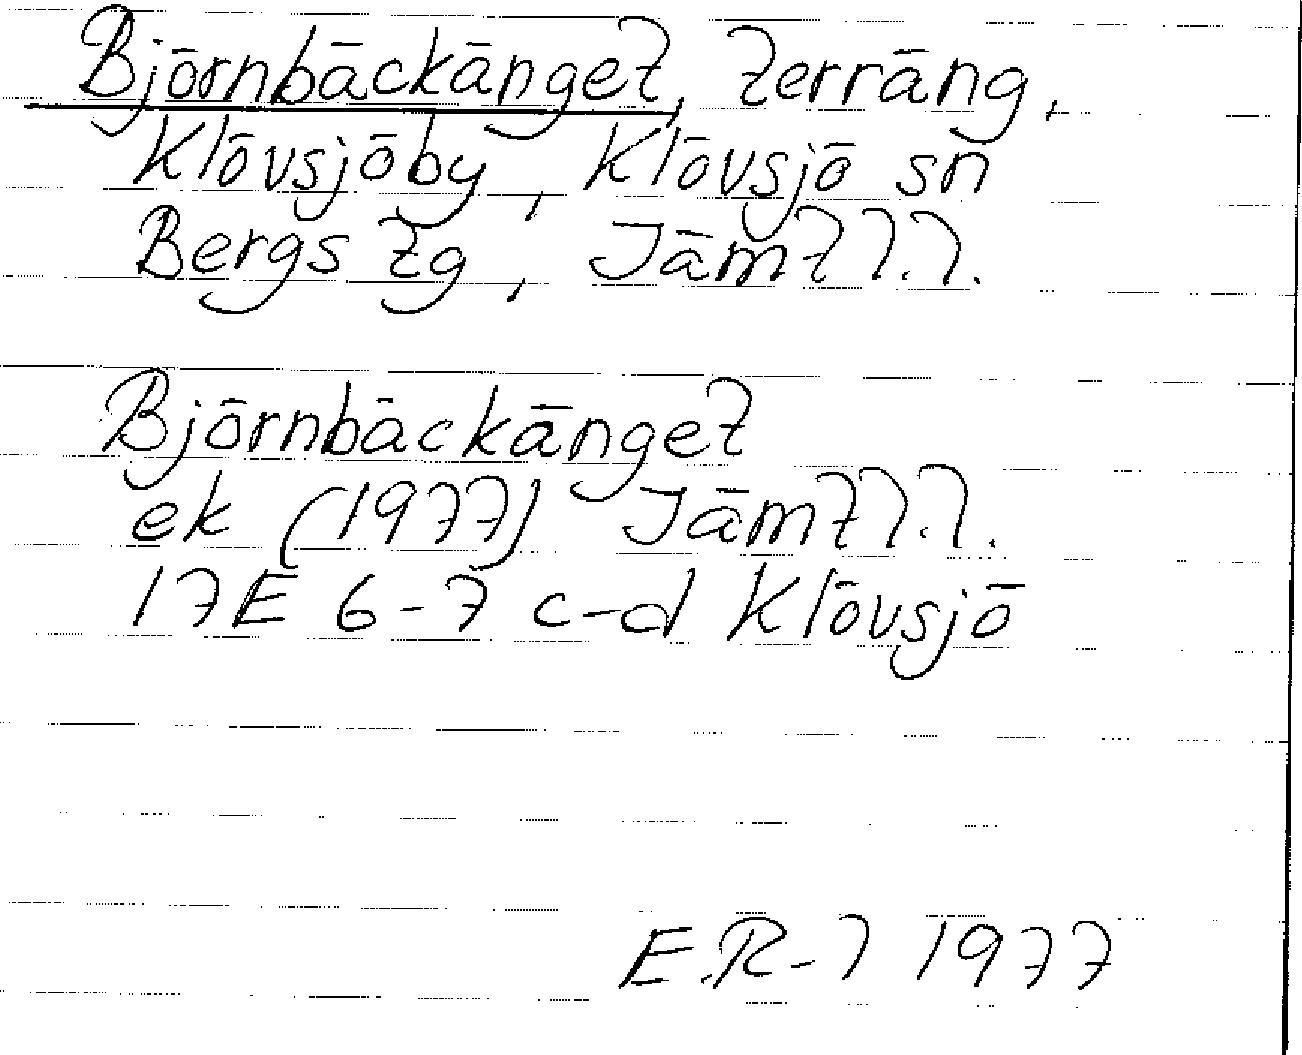 Björnbäckänget, terräng,
Klövsjöby, Klövsjö sn
Bergs tg, Jämtl.l.
Björnbäckänget
ek (1977) Jämtl.l.
17E 6-7 c-d Klövsjö
E.R-l 1977